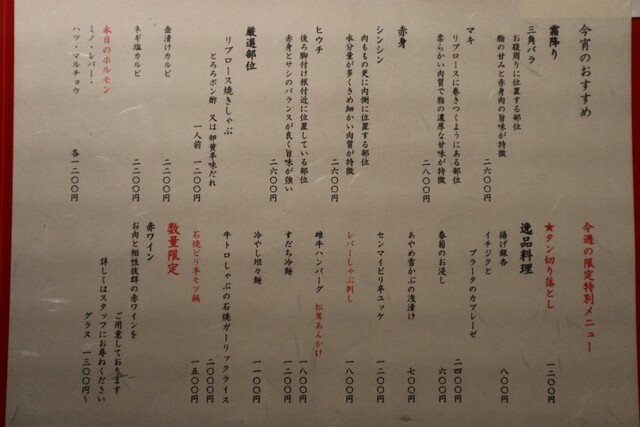 今宵のおすすめ
霜降り
三角バラ
お腹周りに位置する部位
脂の甘みと赤身肉の旨味が特徴
二六〇〇円
マキ
リブロースに巻きつくようにある部位
柔らかい肉質で脂の濃厚な甘味が特徴
二八〇〇円
赤身
シンシン
内ももの更に内側に位置する部位
水分量が多くきめ細かい肉質が特徴
二六〇〇円
ヒウチ
後ろ脚付け根付近に位置している部位
赤身とサシのバランスが良く旨味が強い
二六〇〇円
厳選部位
リブロース焼きしゃぶ
とろろポン酢 又は 卵黄辛味だれ
一人前 一二〇〇円
壺漬けカルビ
二二〇〇円
ネギ塩カルビ
二二〇〇円
本日のホルモン
ミノ・レバー・
ハツ・マルチョウ
各一二〇〇円
今週の限定特別メニュー
★タン切り落とし
一二〇〇円
逸品料理
揚げ銀杏
八〇〇円
イチジクと
ブラータのカプレーゼ
二四〇〇円
春菊のお浸し
六〇〇円
あやめ雪かぶの浅漬け
七〇〇円
センマイピリ辛ユッケ
一二〇〇円
レバーしゃぶ刺し
一八〇〇円
雌牛ハンバーグ 松茸あんかけ
一八〇〇円
すだち冷麺
一二〇〇円
冷やし坦々麺
一一〇〇円
牛トロしゃぶの石焼ガーリックライス
二〇〇〇円
石焼ピリ辛モツ鍋
一五〇〇円
数量限定
赤ワイン
お肉と相性抜群の赤ワインを
ご用意しております
詳しくはスタッフにお尋ねください
グラス 一三〇〇円〜